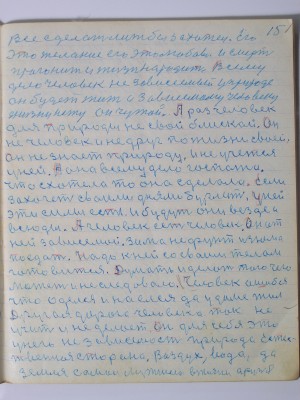 151
Все сделают лишь бы захотел. Его
это желание его это любовь и смерть
прогонит и жизнь народит. Всему
дело человек независимый в природе
он будет жить, а зависимому человеку
он чужой. А раз человек
для природы не свой близкий. Он
не человек и не друг по жизни своей,
он не знает природу, и не учится
у ней. А она всему дело госпожа,
что схотела то она сделала. Если
захочет своими днями бурлит, у ней
эти силы есть и будут они везде а
всюду. А человек есть человек. Он от
ней зависимой. Зима на фронт
поедат. Надо к ней со своим телом
готовится. Думать и делать того чего
может и не следовало. Человек ошибся
что оделся и наелся да у доме жил
Другая дорога человека так не
учит и не делает. Он для себя это
у него независимость природа естес-
твенная сторона. Воздух, вода, да
земля самая нужная